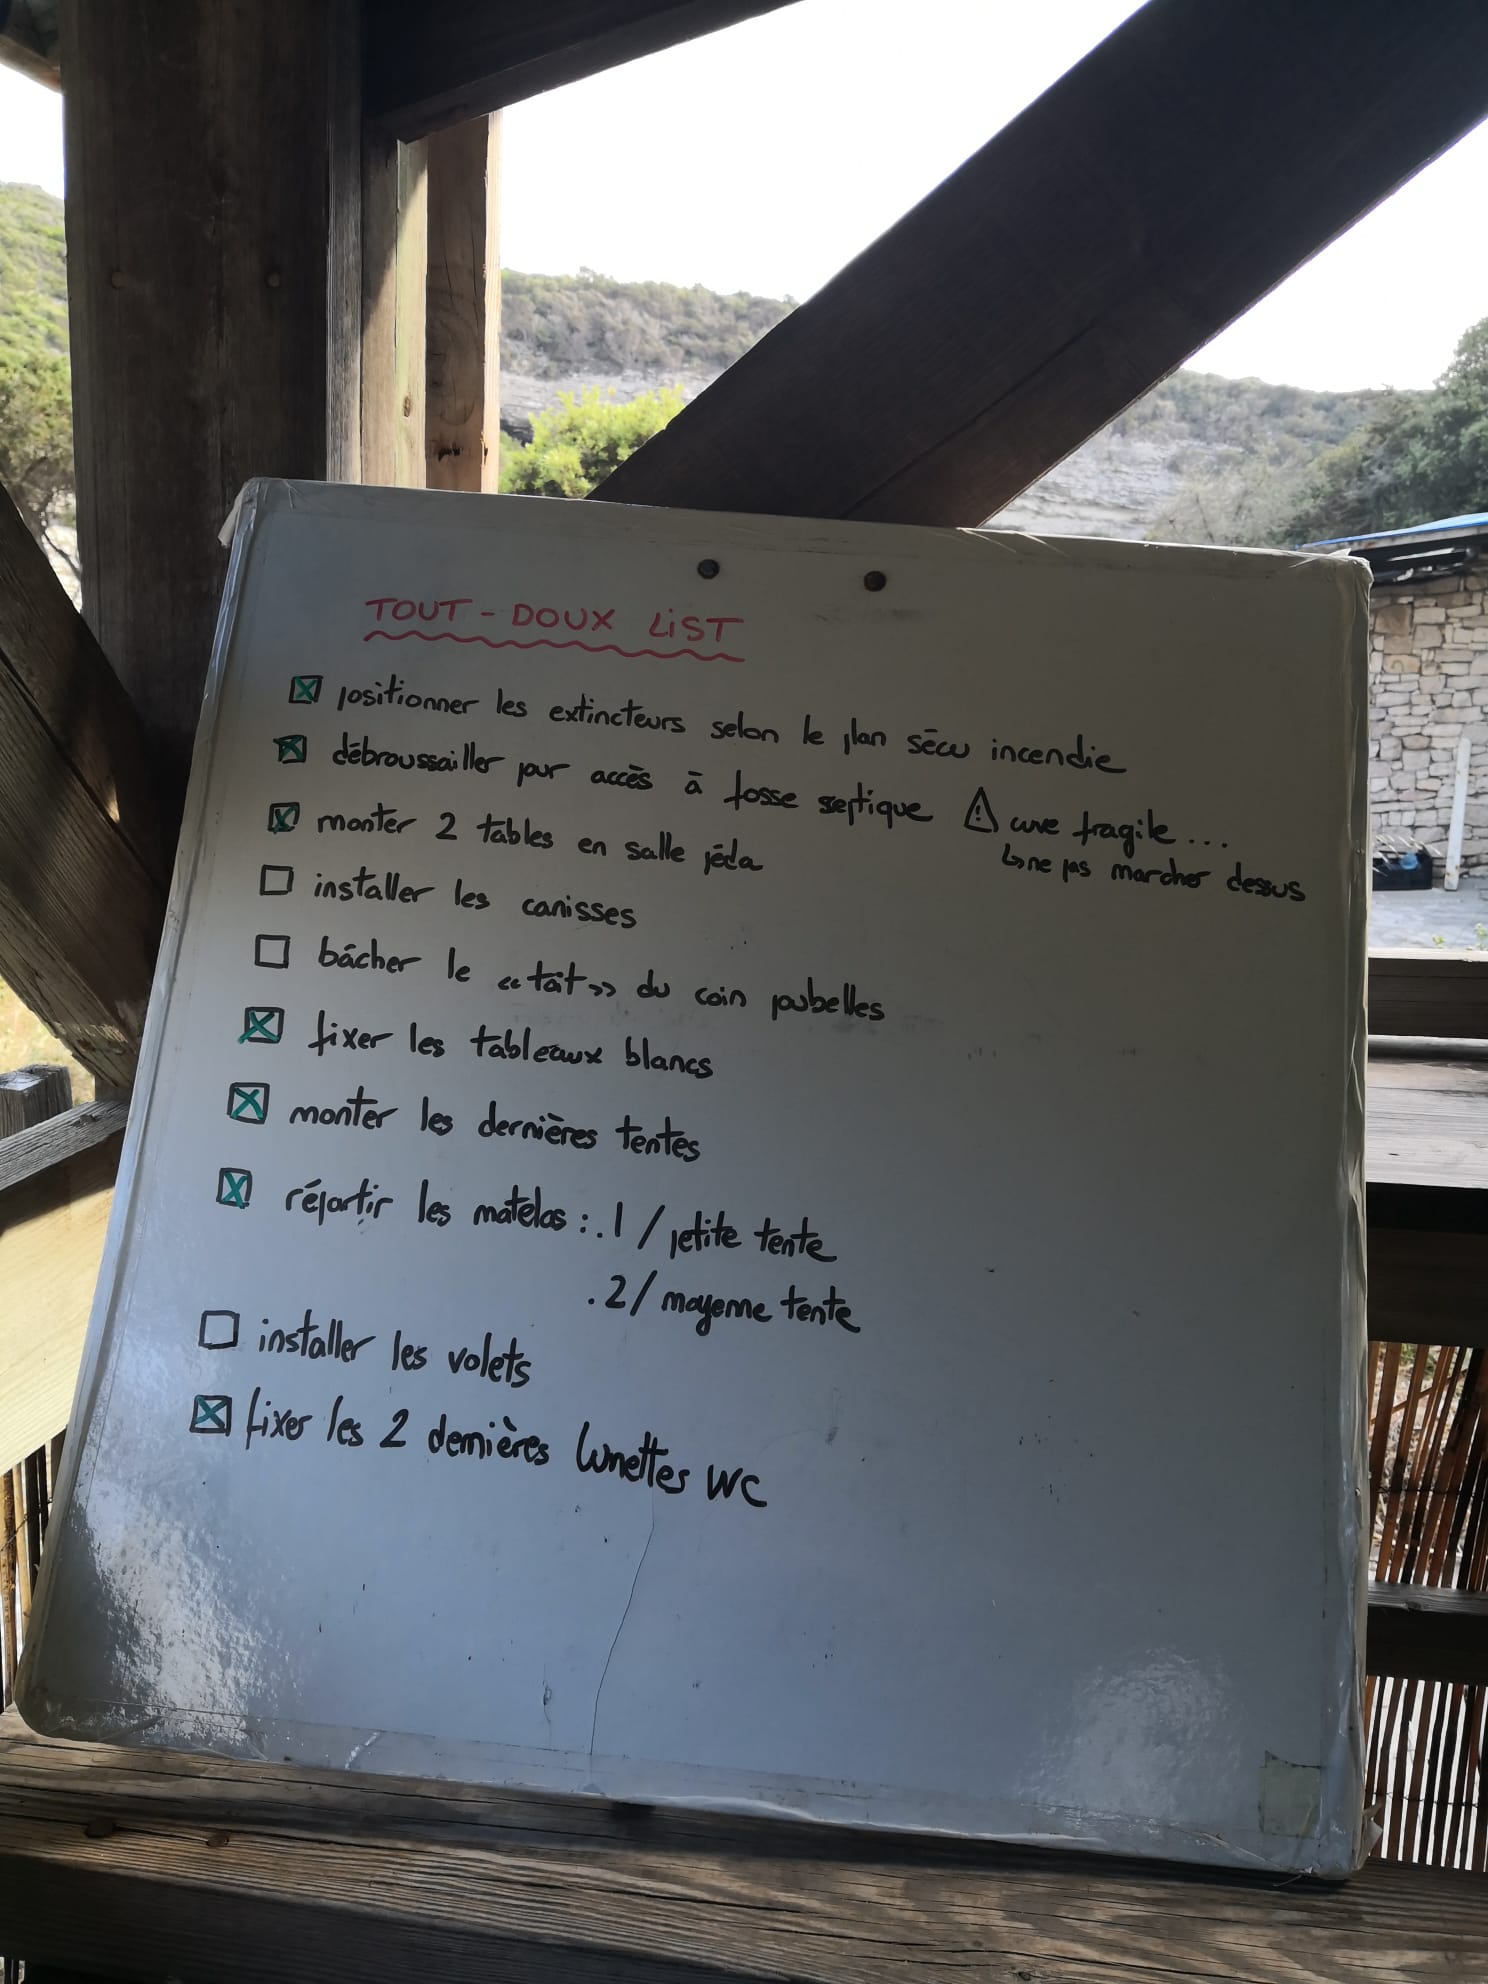 TOUT - DOUX LiST
☒ positionner les extincteurs selon le plan sécu incendie
☒ débroussailler pour accès à fosse septique ⚠ cuve fragile...
↳ ne pas marcher dessus
☒ monter 2 tables en salle péda
☐ installer les canisses
☐ bâcher le «toit» du coin poubelles
☒ fixer les tableaux blancs
☒ monter les dernières tentes
☒ répartir les matelas : . 1 / petite tente
. 2 / moyenne tente
☐ installer les volets
☒ fixer les 2 dernières lunettes WC